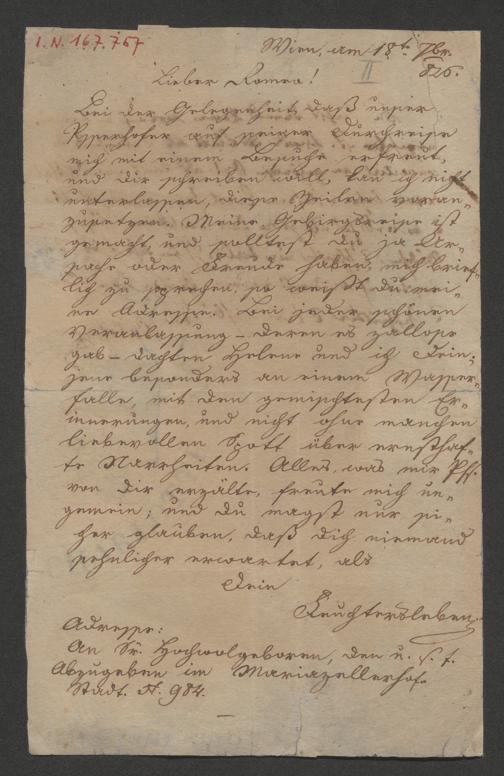 I. N. 167.757
Wien, am 18t. 7br.
826.
II
Lieber Romeo!
Bei der Gelegenheit, daß unser
auf seiner Durchreise
mich mit einem Besuche erfreut,
und dir schreiben will, kan ich nicht
unterlassen, diese Zeilen voran-
zusetzen. Meine Gebirgsreise ist
gemacht, und solltest du ja Ur-
sache oder Freude haben, mich brief-
lich zu sprechen, so weißt du mei-
ne Adresse. Bei jeder schönen
Veranlassung – deren es zallose
gab – dachten Helene und ich Dein;
jene besonders an einem Wasser-
falle, mit den gemischtesten Er-
innerungen, und nicht ohne manchen
liebevollen Spott über ernsthaf-
te Narrheiten. Alles, was mir
von dir erzälte, freute mich un-
gemein; und du magst nur si-
cher glauben, daß dich niemand
sehnlicher erwartet, als
Dein
Feuchtersleben
Adresse:
An Sr. Hochwolgeboren, den u. s. f.
Abzugeben im Mariazellerhof.
Stadt. N. 984.